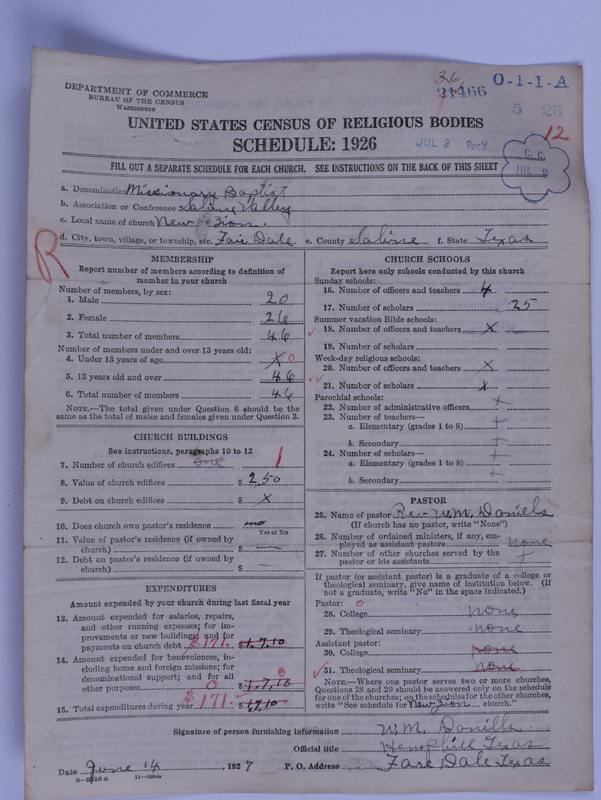 36
21466
O-1-1-A
DEPARTMENT OF COMMERCE
BUREAU OF THE CENSUS
WASHINGTON
5 26
12
UNITED STATES CENSUS OF RELIGIOUS BODIES
SCHEDULE: 1926
JUL 2 Rec'd
C. C.
JUL 2
FILL OUT A SEPARATE SCHEDULE FOR EACH CHURCH. SEE INSTRUCTIONS ON THE BACK OF THIS SHEET
a. Denomination Missionary Baptist
b. Association or Conference Sabine Valley
c. Local name of church New Zion
d. City, town, village, or township, etc. Fair Dale e. County Sabine f. State Texas
R
MEMBERSHIP
Report number of members according to definition of
member in your church
Number of members, by sex:
1. Male 20
2. Female 26
3. Total number of members 46
Number of members under and over 13 years old:
4. Under 13 years of age X 0
5. 13 years old and over 46
6. Total number of members 46
NOTE.—The total given under Question 6 should be the
same as the total of males and females given under Question 3.
CHURCH BUILDINGS
See instructions, paragraphs 10 to 12
7. Number of church edifices one 1
8. Value of church edifices $ 250
9. Debt on church edifices $ X
10. Does church own pastor's residence no
Yes or No
11. Value of pastor's residence (if owned by
church) $ —
12. Debt on pastor's residence (if owned by
church) $ —
EXPENDITURES
Amount expended by your church during last fiscal year
13. Amount expended for salaries, repairs,
and other running expenses; for im-
provements or new buildings; and for
payments on church debt $171. $1,7,10
14. Amount expended for benevolences, in-
cluding home and foreign missions; for
denominational support; and for all
other purposes 0 $1,7,10 0
15. Total expenditures during year $171. $1,710
CHURCH SCHOOLS
Report here only schools conducted by this church
Sunday schools:
16. Number of officers and teachers 4
17. Number of scholars 25
Summer vacation Bible schools:
18. Number of officers and teachers X
19. Number of scholars
Week-day religious schools:
20. Number of officers and teachers X
21. Number of scholars X
Parochial schools:
22. Number of administrative officers +
23. Number of teachers—
a. Elementary (grades 1 to 8) +
b. Secondary +
24. Number of scholars—
a. Elementary (grades 1 to 8) +
b. Secondary
PASTOR
25. Name of pastor Rev W.M. Daniells
(If church has no pastor, write "None")
26. Number of ordained ministers, if any, em-
ployed as assistant pastors none
27. Number of other churches served by the
pastor or his assistants +
If pastor (or assistant pastor) is a graduate of a college or
theological seminary, give name of institution below. (If
not a graduate, write "No" in the space indicated.)
Pastor: 0
28. College none
29. Theological seminary none
Assistant pastor:
30. College none
31. Theological seminary none
NOTE.—Where one pastor serves two or more churches,
Questions 28 and 29 should be answered only on the schedule
for one of the churches; on the schedules for the other churches,
write "See schedule for New Zion church."
Signature of person furnishing information W.M. Danills
Official title Hemphill Texas
Date June 14, 1927 P. O. Address Fare Dale Texas
11—9664a